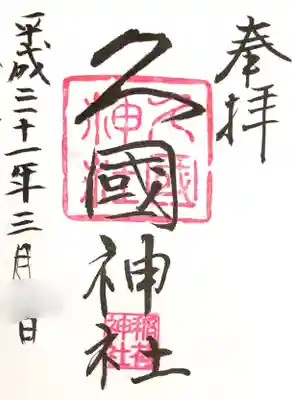 奉拝
久國神社
久國
神社
稲荷
神社
平成二十一年三月 日